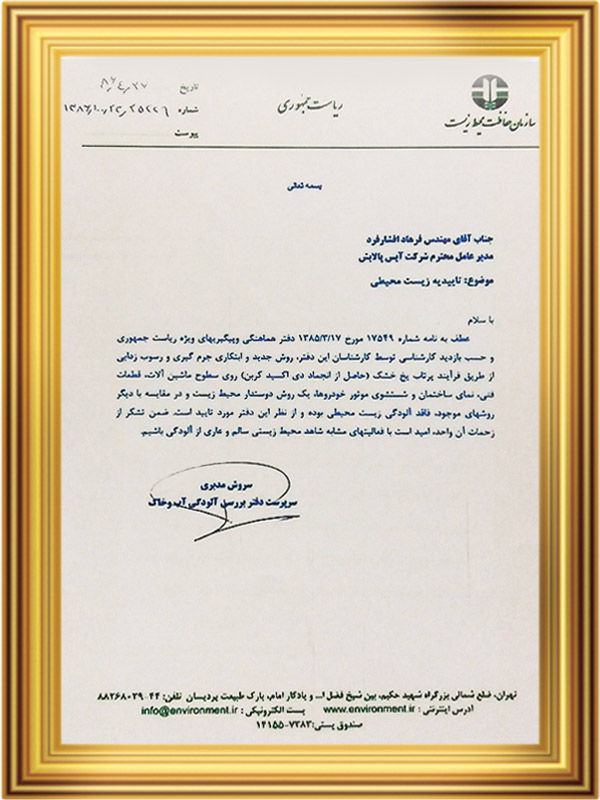 ریاست جمهوری
سازمان حفاظت محیط زیست
تاریخ
شماره
پیوست
بسمه تعالی
جناب آقای مهندس فرهاد افشارفرد
مدیر عامل محترم شرکت آیس پالایش
موضوع: تاییدیه زیست محیطی
با سلام
عطف به نامه شماره ۱۷۵۴۹ مورخ ۱۳۸۵/۳/۱۷ دفتر هماهنگی وپیگیریهای ویژه ریاست جمهوری
و حسب بازدید کارشناسی توسط کارشناسان این دفتر، روش جدید و ابتکاری جرم گیری و رسوب زدایی
از طریق فرآیند پرتاب یخ خشک (حاصل از انجماد دی اکسید کربن) روی سطوح ماشین آلات، قطعات
فنی، نمای ساختمان و شستشوی موتور خودروها، یک روش دوستدار محیط زیست و در مقایسه با دیگر
روشهای موجود، فاقد آلودگی زیست محیطی بوده و از نظر این دفتر مورد تایید است. ضمن تشکر از
زحمات آن واحد، امید است با فعالیتهای مشابه شاهد محیط زیستی سالم و عاری از آلودگی باشیم.
سروش مدبری
سرپرست دفتر بررسی آلودگی آب وخاک
تهران، ضلع شمالی بزرگراه شهید حکیم، بین شیخ فضل ا... و یادگار امام، پارک طبیعت پردیسان تلفن: ۴۴-۸۸۲۶۸۰۳۹
آدرس اینترنتی : www.environment.ir پست الکترونیکی : info@environment.ir
صندوق پستی:۷۳۸۳-۱۴۱۵۵